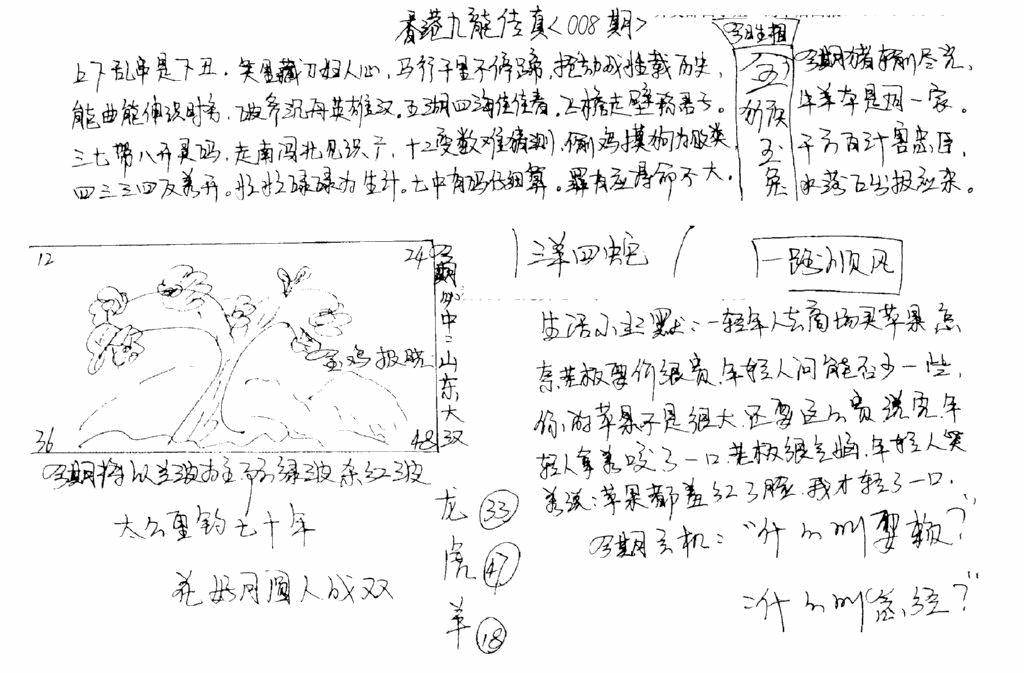 香港九龙传真<008期>
上下乱串是下丑,笑里藏刀妇人心,马行千里不停蹄,
能曲能伸识时务,英雄汉,五湖四海佳佳春,飞檐走壁
三七带八开灵码,走南闯北见识广,十二变数难猜测,偷鸡摸狗为败类,
四三三四反着开。忙忙碌碌为生计。七中有码仔细算。罪有应得命不大。
今日生相
玉
猴
玉
兔
今期猪
牛羊本是同一家。
千方百计害忠臣,
水落石出报应来。
12
24
36
48
金鸡报晓
今期必中三山东大汉
三洋四蛇
一路顺风
生活小幽默:一轻年人去商场买苹果
老板要价很贵,年轻人问能否少一些,
你的苹果不是很大,还要这么贵,说完年
轻人拿着咬了一口,老板很气恼,年轻人笑
着说:苹果都羞红了脸,我才轻了一口.
今期玄机:"什么叫要赖?"
:什么叫念经?"
今期将以兰波为主 绿波杂红波
太公垂钓七十年
花好月圆人成双
龙 33
虎 47
羊 18